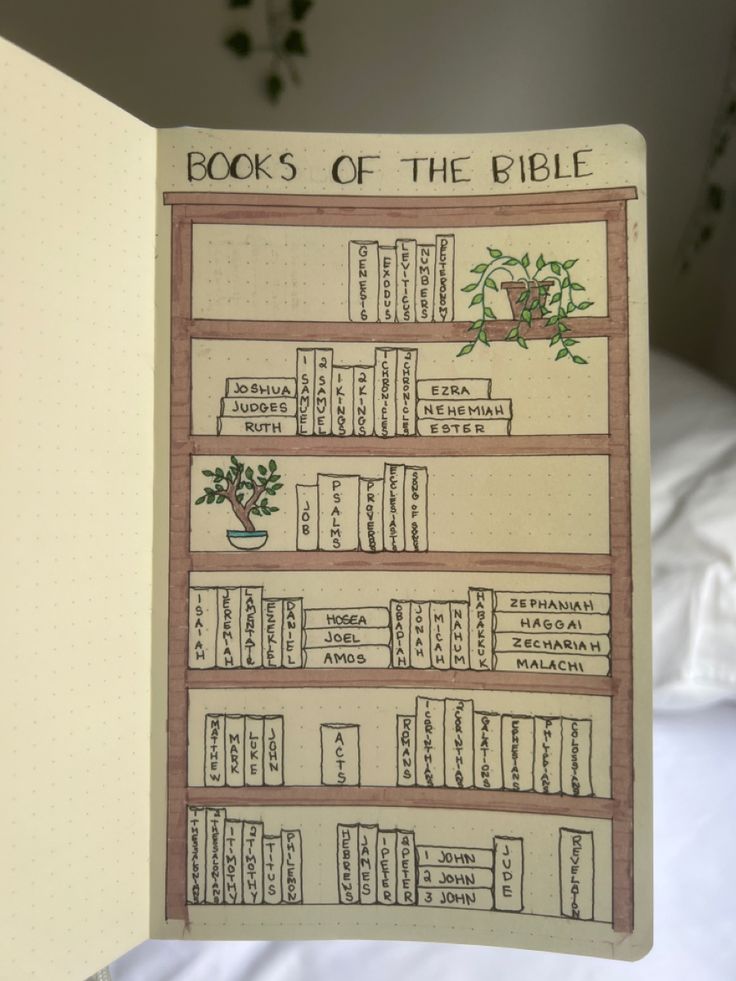 BOOKS OF THE BIBLE
GENESIS
EXODUS
LEVITICUS
NUMBERS
DEUTERONOMY
JOSHUA
JUDGES
RUTH
1 SAMUEL
2 SAMUEL
1 KINGS
2 KINGS
1 CHRONICLES
2 CHRONICLES
EZRA
NEHEMIAH
ESTER
JOB
PSALMS
PROVERBS
ECCLESIASTES
SONG OF SONGS
ISAIAH
JEREMIAH
EZEKIEL
DANIEL
HOSEA
JOEL
AMOS
OBADIAH
JONAH
MICAH
NAHUM
HABAKKUK
ZEPHANIAH
HAGGAI
ZECHARIAH
MALACHI
MATTHEW
MARK
LUKE
JOHN
ACTS
ROMANS
1 CORINTHIANS
2 CORINTHIANS
GALATIONS
EPHESIANS
COLOSSIANS
1 THESSALONIANS
2 THESSALONIANS
1 TIMOTHY
2 TIMOTHY
TITUS
PHILEMON
HEBREWS
JAMES
1 PETER
2 PETER
1 JOHN
2 JOHN
3 JOHN
JUDE
REVELATION